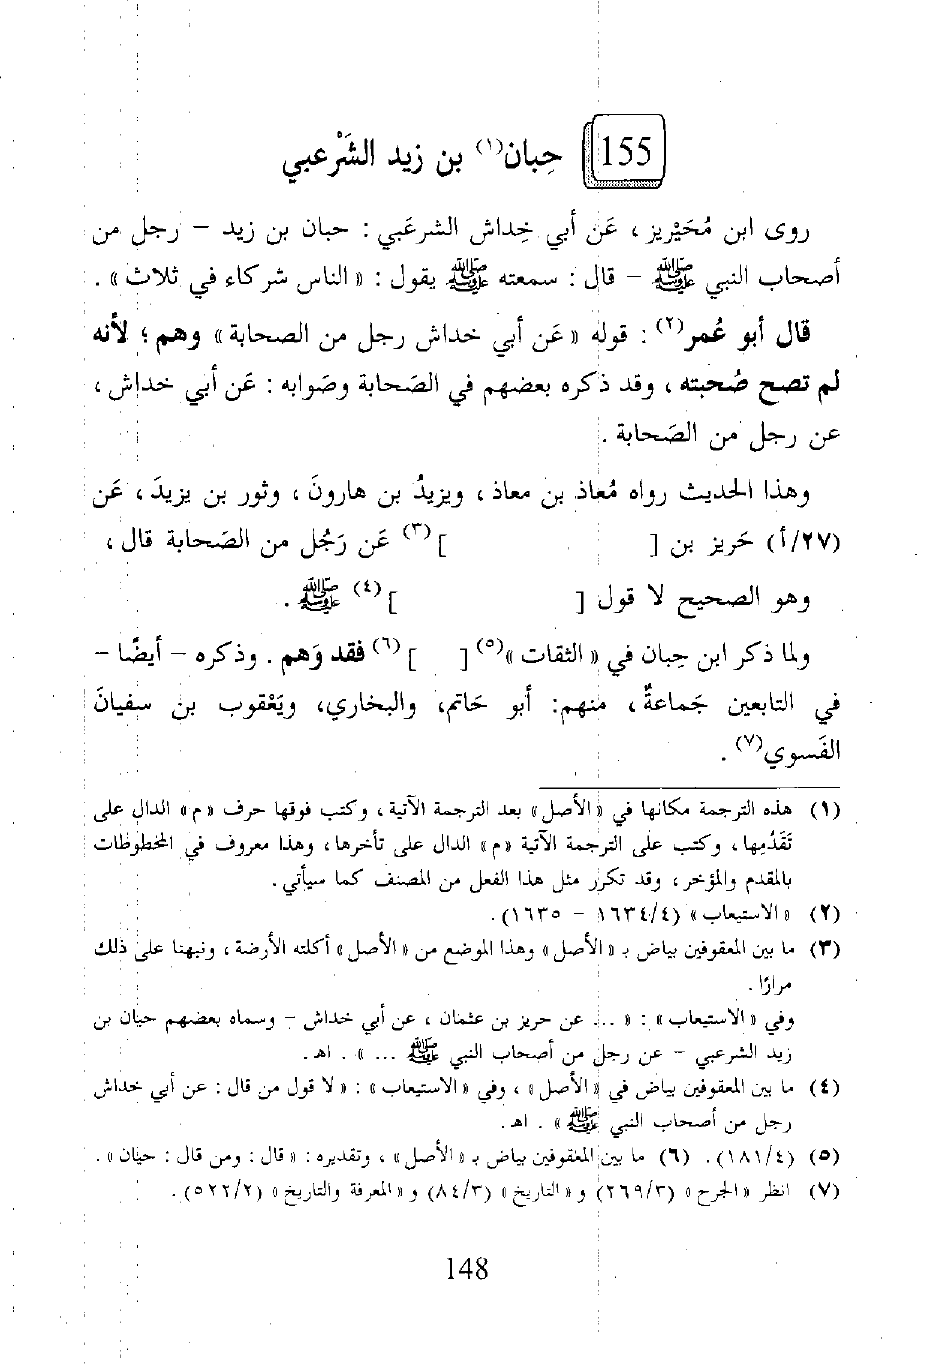 155 حِبان(١) بن زيد الشَرْعبي
روى ابن مُحَيْريز ، عَن أبي خِداش الشرعَبي : حبان بن زيد – رجل من
أصحاب النبي ﷺ – قال : سمعته ﷺ يقول : « الناس شركاء في ثلاث » .
قال أبو عُمر(٢) : قوله « عَن أبي خداش رجل من الصحابة » وهم ؛ لأنه
لم تصح صُحبته ، وقد ذكره بعضهم في الصَحابة وصَوابه : عَن أبي خداش ،
عن رجل من الصَحابة .
وهذا الحديث رواه مُعاذ بن معاذ ، ويزيدُ بن هارونَ ، وثور بن يزيدَ ، عَن
(٢٧/أ) حَريز بن [ ](٣) عَن رَجُل من الصَحابة قال ،
وهو الصحيح لا قول [ ](٤) ﷺ .
ولما ذكر ابن حِبان في « الثقات »(٥) [ ](٦) فقد وَهم . وذكره – أيضًا –
في التابعين جَماعةٌ ، منهم: أبو حَاتم، والبخاري، ويَعْقوب بن سفيانَ
الفَسوي(٧) .
(١) هذه الترجمة مكانها في « الأصل » بعد الترجمة الآتية ، وكتب فوقها حرف « م » الدال على
تَقَدُمِها ، وكتب على الترجمة الآتية «م» الدال على تأخرها، وهذا معروف في المخطوطات
بالمقدم والمؤخر، وقد تكرر مثل هذا الفعل من المصنف كما سيأتي.
(٢) « الاستيعاب » (١٦٣٤/٤ – ١٦٣٥).
(٣) ما بين المعقوفين بياض بـ « الأصل » وهذا الموضع من « الأصل » أكلته الأرضة ، ونبهنا على ذلك
مرارًا .
وفي « الاستيعاب » : « ... عن حريز بن عثمان ، عن أبي خداش – وسماه بعضهم حبان بن
زيد الشرعبي – عن رجل من أصحاب النبي ﷺ ... » . اهـ .
(٤) ما بين المعقوفين بياض في « الأصل » ، وفي « الاستيعاب » : « لا قول من قال : عن أبي خداش
رجل من أصحاب النبي ﷺ » . اهـ .
(٥) (١٨١/٤) . (٦) ما بين المعقوفين بياض بـ « الأصل » ، وتقديره : « قال : ومن قال : حيان » .
(٧) انظر « الجرح » (٢٦٩/٣) و « التاريخ » (٨٤/٣) و « المعرفة والتاريخ » (٥٢٢/٢) .
148